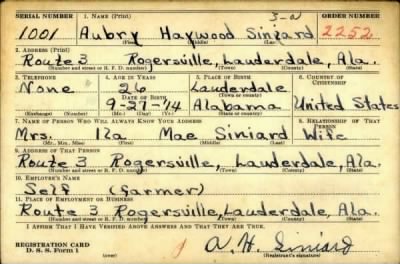 SERIAL NUMBER 1. NAME (Print) 3-a ORDER NUMBER
1001 Aubry Haywood Siniard 2252
(First) (Middle) (Last)
2. ADDRESS (Print)
Route 3 Rogersville, Lauderdale, Ala.
(Number and street or R. F. D. number) (Town) (County) (State)
3. TELEPHONE 4. AGE IN YEARS 5. PLACE OF BIRTH 6. COUNTRY OF CITIZENSHIP
None 26 Lauderdale
DATE OF BIRTH (Town or county)
9-21-14 Alabama United States
(Exchange) (Number) (Mo.) (Day) (Yr.) (State or country)
7. NAME OF PERSON WHO WILL ALWAYS KNOW YOUR ADDRESS 8. RELATIONSHIP OF THAT PERSON
Mrs. Ila Mae Siniard Wife
(Mr., Mrs., Miss) (First) (Middle) (Last)
9. ADDRESS OF THAT PERSON
Route 3 Rogersville, Lauderdale, Ala.
(Number and street or R. F. D. number) (Town) (County) (State)
10. EMPLOYER'S NAME
Self (Farmer)
11. PLACE OF EMPLOYMENT OR BUSINESS
Route 3 Rogersville, Lauderdale, Ala.
(Number and street or R. F. D. number) (Town) (County) (State)
I AFFIRM THAT I HAVE VERIFIED ABOVE ANSWERS AND THAT THEY ARE TRUE.
REGISTRATION CARD
D. S. S. Form 1 A. H. Siniard
(Registrant's signature)